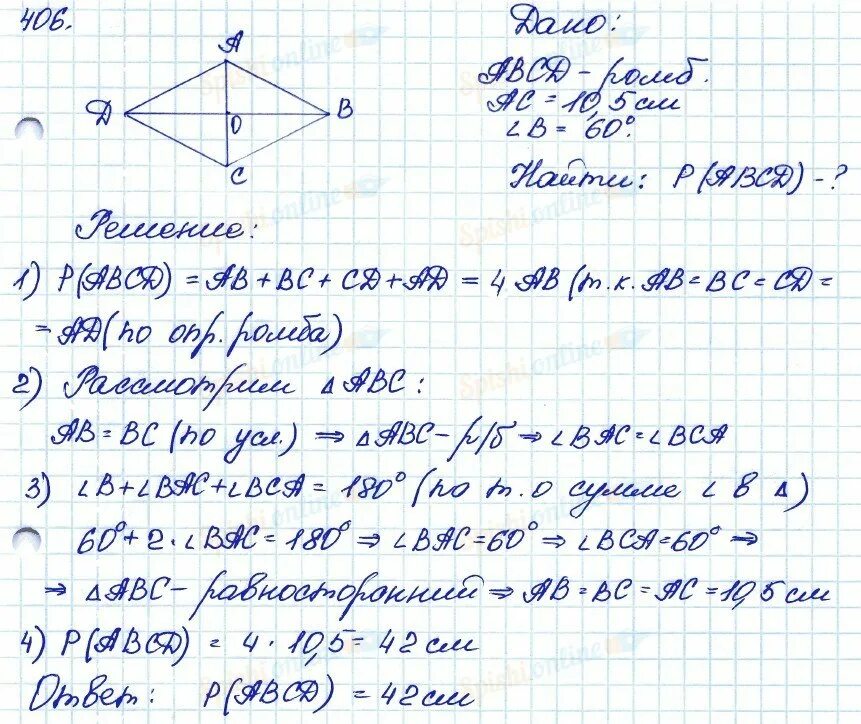 406.
A
D
B
O
C
Дано:
ABCD – ромб.
AC = 10,5 см
∠B = 60°.
Найти: P(ABCD) – ?
Решение:
1) P(ABCD) = AB + BC + CD + AD = 4 AB (т.к. AB = BC = CD =
= AD (по опр. ромба)
2) Рассмотрим △ABC:
AB = BC (по усл.) ⇒ △ABC – р/б ⇒ ∠BAC = ∠BCA
3) ∠B + ∠BAC + ∠BCA = 180° (по т. о сумме ∠ в △)
60° + 2 · ∠BAC = 180° ⇒ ∠BAC = 60° ⇒ ∠BCA = 60° ⇒
⇒ △ABC – равносторонний ⇒ AB = BC = AC = 10,5 см
4) P(ABCD) = 4 · 10,5 = 42 см
Ответ: P(ABCD) = 42 см
Spishi.online
Spishi.online
Spishi.online
Spishi.online
Spishi.online
Spishi.online
Spishi.online
Spishi.online